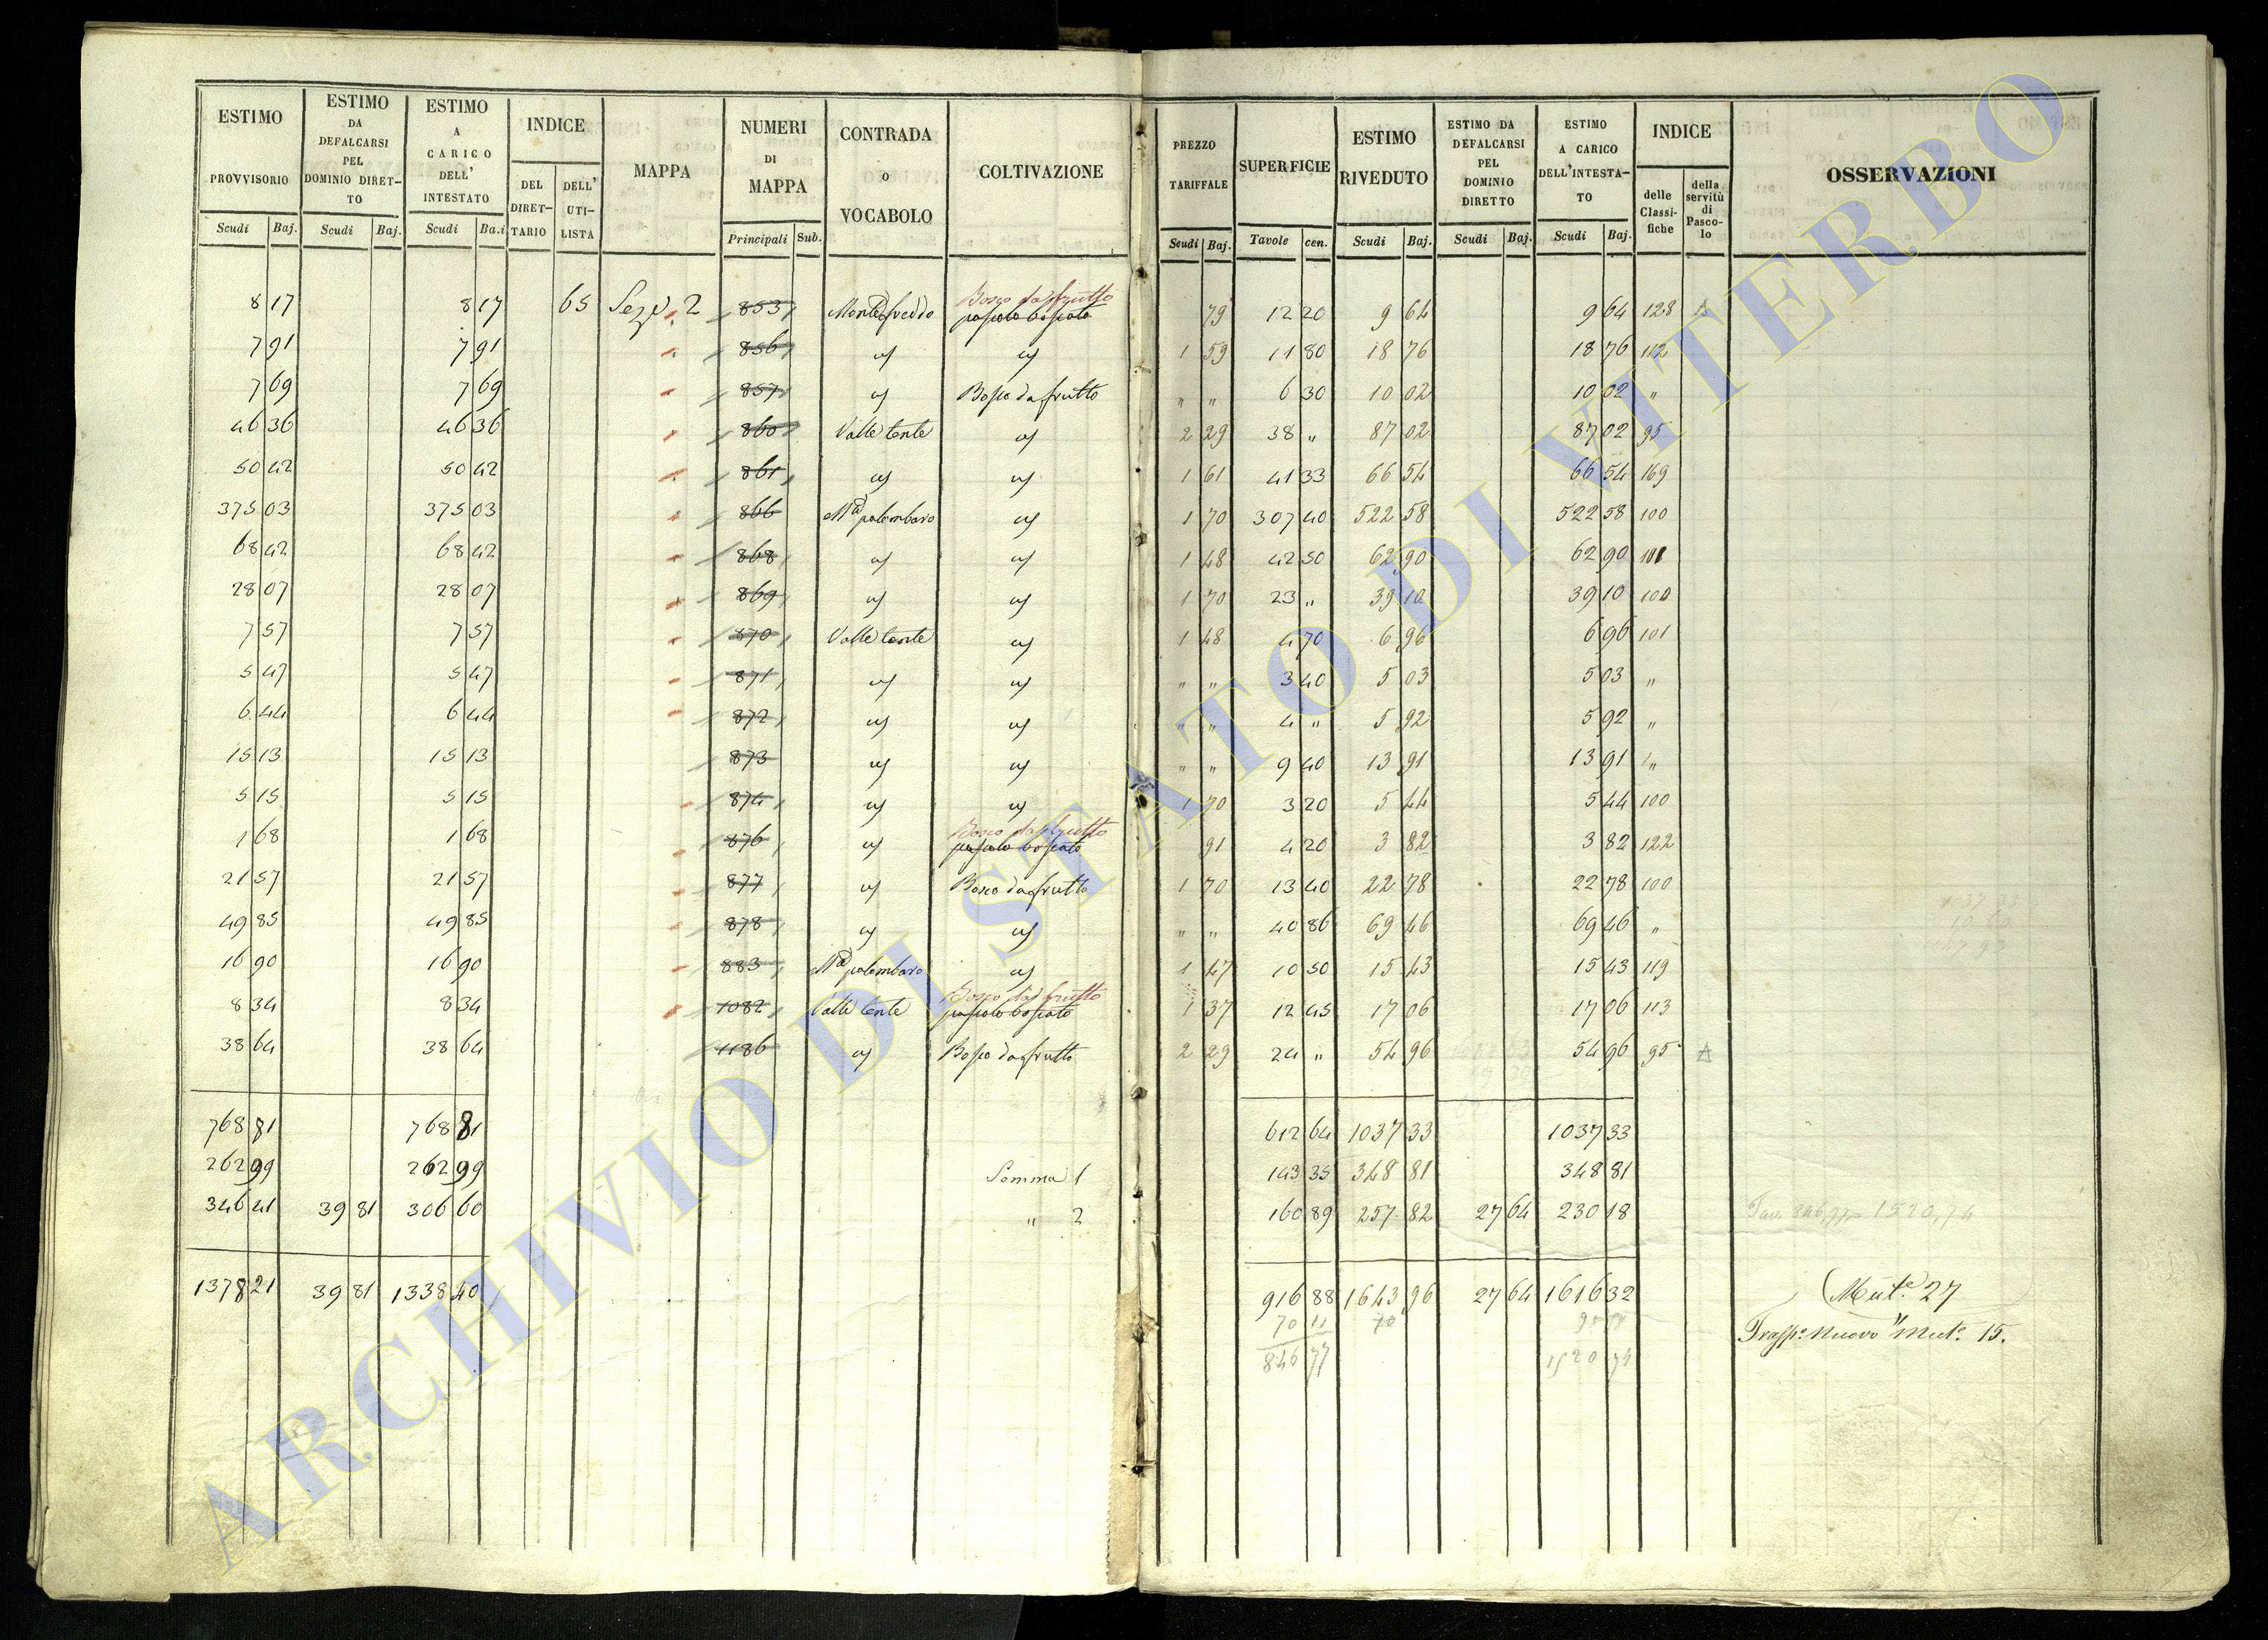 ESTIMO PROVVISORIO | ESTIMO DA DEFALCARSI PEL DOMINIO DIRET-TO | ESTIMO A CARICO DELL' INTESTATO | INDICE DEL DIRET-TARIO | DELL' UTI-LISTA | MAPPA | NUMERI DI MAPPA | CONTRADA o VOCABOLO | COLTIVAZIONE | PREZZO TARIFFALE | SUPERFICIE | ESTIMO RIVEDUTO | ESTIMO DA DEFALCARSI PEL DOMINIO DIRETTO | ESTIMO A CARICO DELL'INTESTA-TO | INDICE delle Classi-fiche | della servitù di Pasco-lo | OSSERVAZIONI
Scudi | Baj. | Scudi | Baj. | Scudi | Ba.i | Principali | Sub. | Scudi | Baj. | Tavole | cen. | Scudi | Baj. | Scudi | Baj. | Scudi | Baj.
Bosco da frutto
8 17 | 8 17 | 65 | Seze. 2 | 853 | Montefreddo | pascolo boscato | 79 | 12 20 | 9 64 | 9 64 | 128 | A
7 91 | 7 91 | 856 | " | " | 1 59 | 11 80 | 18 76 | 18 76 | 112
7 69 | 7 69 | 857 | " | Bosco da frutto | " " | 6 30 | 10 02 | 10 02 | "
46 36 | 46 36 | 860 | Valle tente | " | 2 29 | 38 " | 87 02 | 87 02 | 95
50 42 | 50 42 | 861 | " | " | 1 61 | 41 33 | 66 54 | 66 54 | 169
375 03 | 375 03 | 866 | Ma palombaro | " | 1 70 | 307 40 | 522 58 | 522 58 | 100
68 42 | 68 42 | 868 | " | " | 1 48 | 42 50 | 62 90 | 62 90 | 101
28 07 | 28 07 | 869 | " | " | 1 70 | 23 " | 39 10 | 39 10 | 100
7 57 | 7 57 | 870 | Valle tente | " | 1 48 | 4 70 | 6 96 | 6 96 | 101
5 47 | 5 47 | 871 | " | " | " " | 3 40 | 5 03 | 5 03 | "
6 44 | 6 44 | 872 | " | " | " " | 4 " | 5 92 | 5 92 | "
15 13 | 15 13 | 873 | " | " | " " | 9 40 | 13 91 | 13 91 | "
5 15 | 5 15 | 874 | " | " | 1 70 | 3 20 | 5 44 | 5 44 | 100
Bosco da frutto
1 68 | 1 68 | 876 | " | pascolo boscato | 91 | 4 20 | 3 82 | 3 82 | 122
21 57 | 21 57 | 877 | " | Bosco da frutto | 1 70 | 13 40 | 22 78 | 22 78 | 100
49 85 | 49 85 | 878 | " | " | " " | 40 86 | 69 46 | 69 46 | "
16 90 | 16 90 | 883 | Ma palombaro | " | 1 47 | 10 50 | 15 43 | 15 43 | 119
Bosco da frutto
8 34 | 8 34 | 1082 | Valle tente | pascolo boscato | 1 37 | 12 45 | 17 06 | 17 06 | 113
38 64 | 38 64 | 1186 | " | Bosco da frutto | 2 29 | 24 " | 54 96 | 54 96 | 95 | A
768 81 | 768 81 | 612 64 | 1037 33 | 1037 33
262 99 | 262 99 | Somma 1 | 143 35 | 348 81 | 348 81
346 41 | 39 81 | 306 60 | " 2 | 160 89 | 257 82 | 27 64 | 230 18 | Tav. 846,77 1520,74
1378 21 | 39 81 | 1338 40 | 916 88 | 1643 96 | 27 64 | 1616 32 | Mut.e 27
70 11
Trasp.o nuovo Mut.e 15.
846 77 | 1520 74
ARCHIVIO DI STATO DI VITERBO